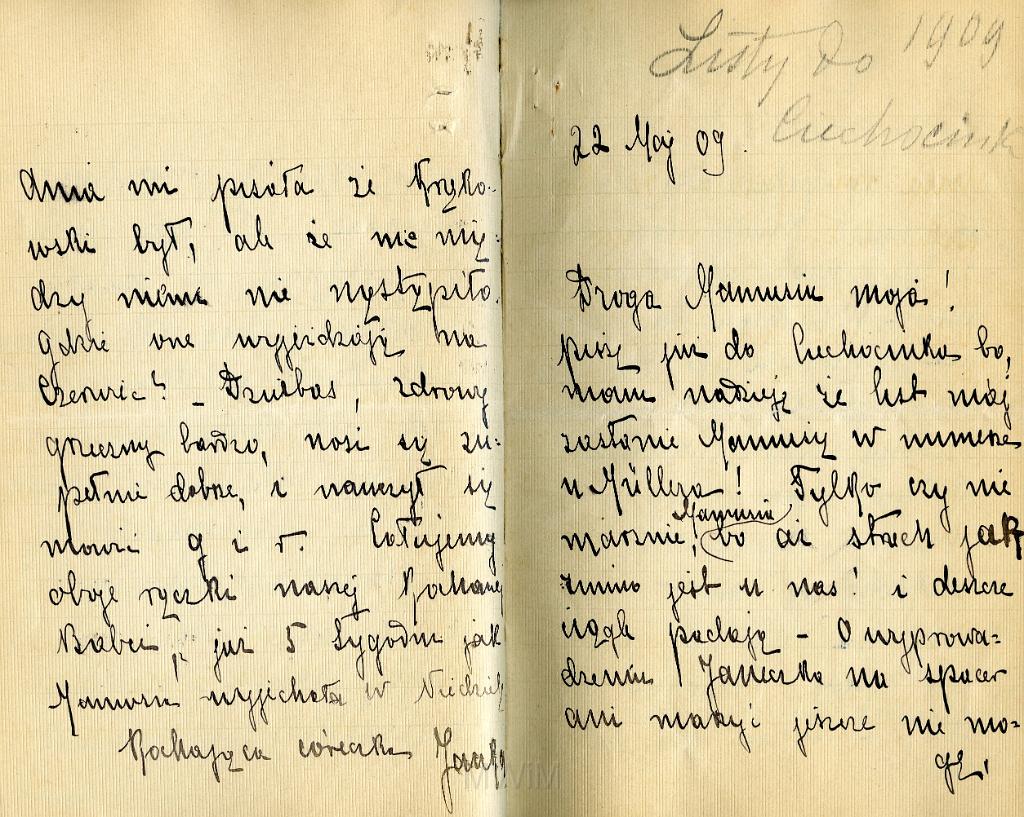 Listy do 1909
Ciechocinka
22 Maj 09.
Droga Mamusiu moja!
piszę już do Ciechocinka bo,
mam nadzieję że list mój
zastanie Mamusię w numerze
u Müllera! Tylko czy nie
Mamusia
marznie, bo aż strach jak
zimno jest u nas! i deszcze
ciągle padają - O wyprowa-
dzeniu Janeczka na spacer
ani marzyć jeszcze nie mo-
gę,
Ania mi pisała że
wski był, ale że nic mię-
dzy niemi nie wystąpiło.
Gdzie one wyjeżdżają na
Czerwiec? - Dziubas, zdrowy
grzeczny bardzo, nosi się zu-
pełnie dobrze, i nauczył się
mówić g i r. Całujemy
oboje rączki naszej Kochanej
Babci, już 5 tygodni jak
Mamusia wyjechała w Niedzielę
Kochająca córeczka Janka